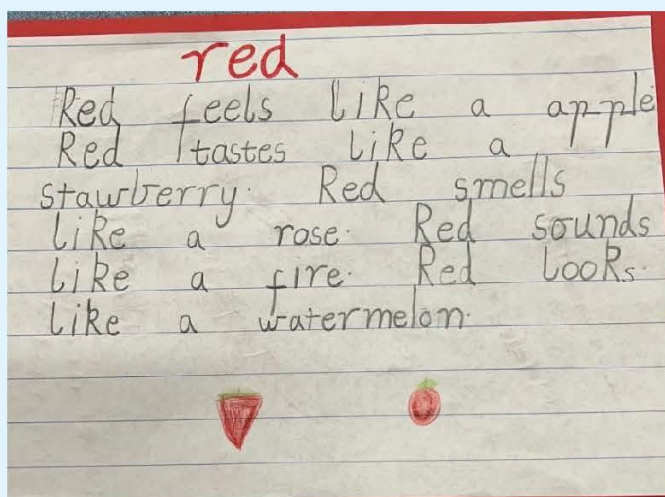 red
Red feels like a apple
Red tastes like a
stawberry. Red smells
like a rose. Red sounds
like a fire. Red looks.
like a watermelon.